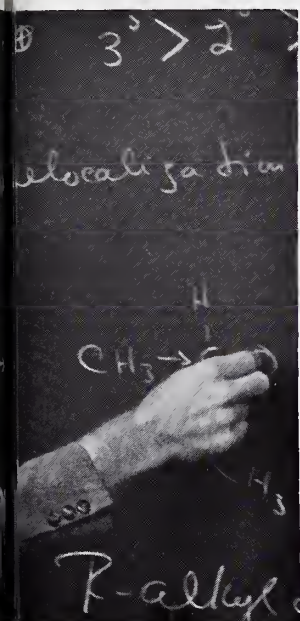 ⊕ 3° > 2° >
elocalization
H
CH₃→C
H₃
R-alkyl